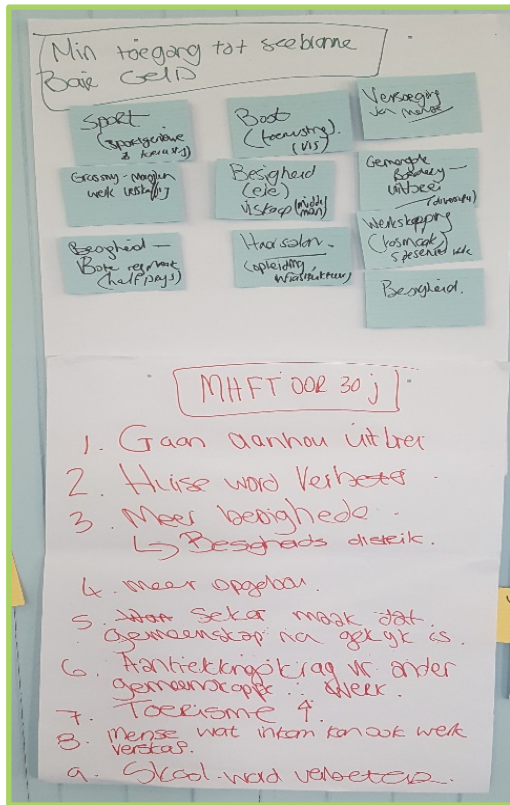 Min toegang tot seebronne
Baie GELD
Sport
(sportgeriewe
& toerusting)
Boot
(toerusting).
(vis)
Versorging
van mense
werk verskaffing
Besigheid
(eie)
viskoop (middel
man)
Gemengde
Boerdery —
uitbrei
Besigheid —
Bote
(halfpays)
Haarsalon —
(opleiding,
infrastruktuur)
Werkskepping
(kosmaak)
Besigheid.
MHFT OOR 30 j
1. Gaan aanhou uitbrei
2. Huise word verbeter
3. Meer besighede.
↳ Besigheids distrik.
4. meer opgebou.
5. seker maak dat
gemeenskap na gekyk is.
6. Aantrekkingskrag vr ander
gemeenskappe .. werk.
7. Toerisme ↑
8. Mense wat inkom kan ook werk
verskaf.
9. Skool word verbeter.